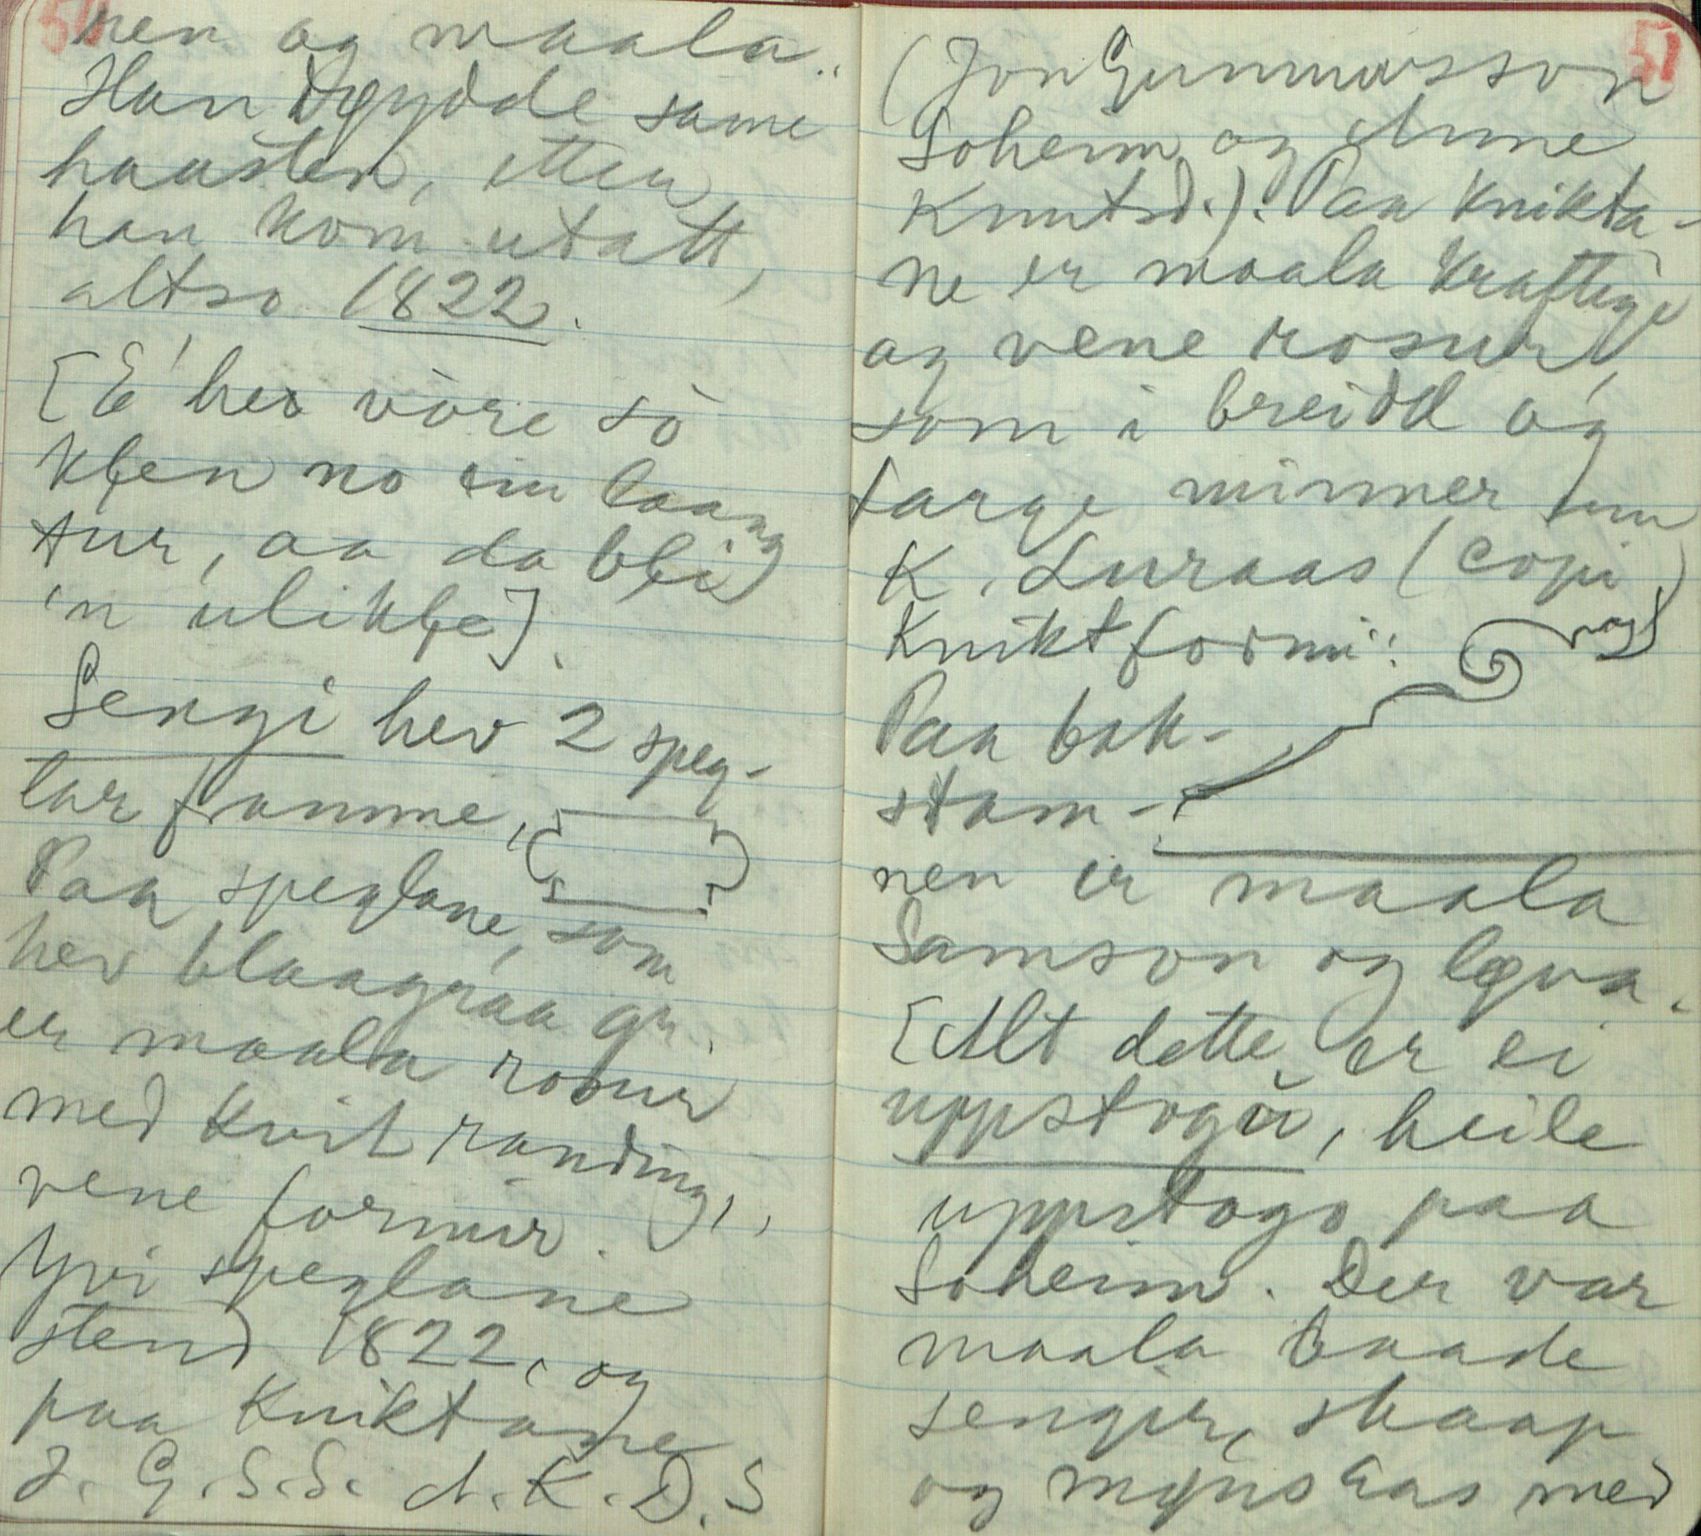 50
nen og maala.
Han døydde same
hausten, etter
han kom utatt,
altso 1822.
[E' hev vòre sò
kļen no ein laang
tur, aa da bļi
'n ulikļe].
Sengi hev 2 speg-
lar framme,
Paa speglane, som
hev blaagraa gr.
er maala rosur
med kvit randing,
vene formir.
Yvi speglane
stend 1822, og
paa kniktane
J. G. S. S. A. K. D. S
51
(Jon Gunnarsson
Soheim og Anne
Knutsd.). Paa knikta-
ne er maala kraftige
og vene rosur,
som i breidd og
farge minner um
K. Luraas (copi
Kniktformi:
Paa bak-
stam-
nen er maala
Samson og løva.
[Alt dette er ei
uppstogu, heile
uppstogo paa
Soheim. Der var
maala baade
sengir, skaap
og mønsaas med